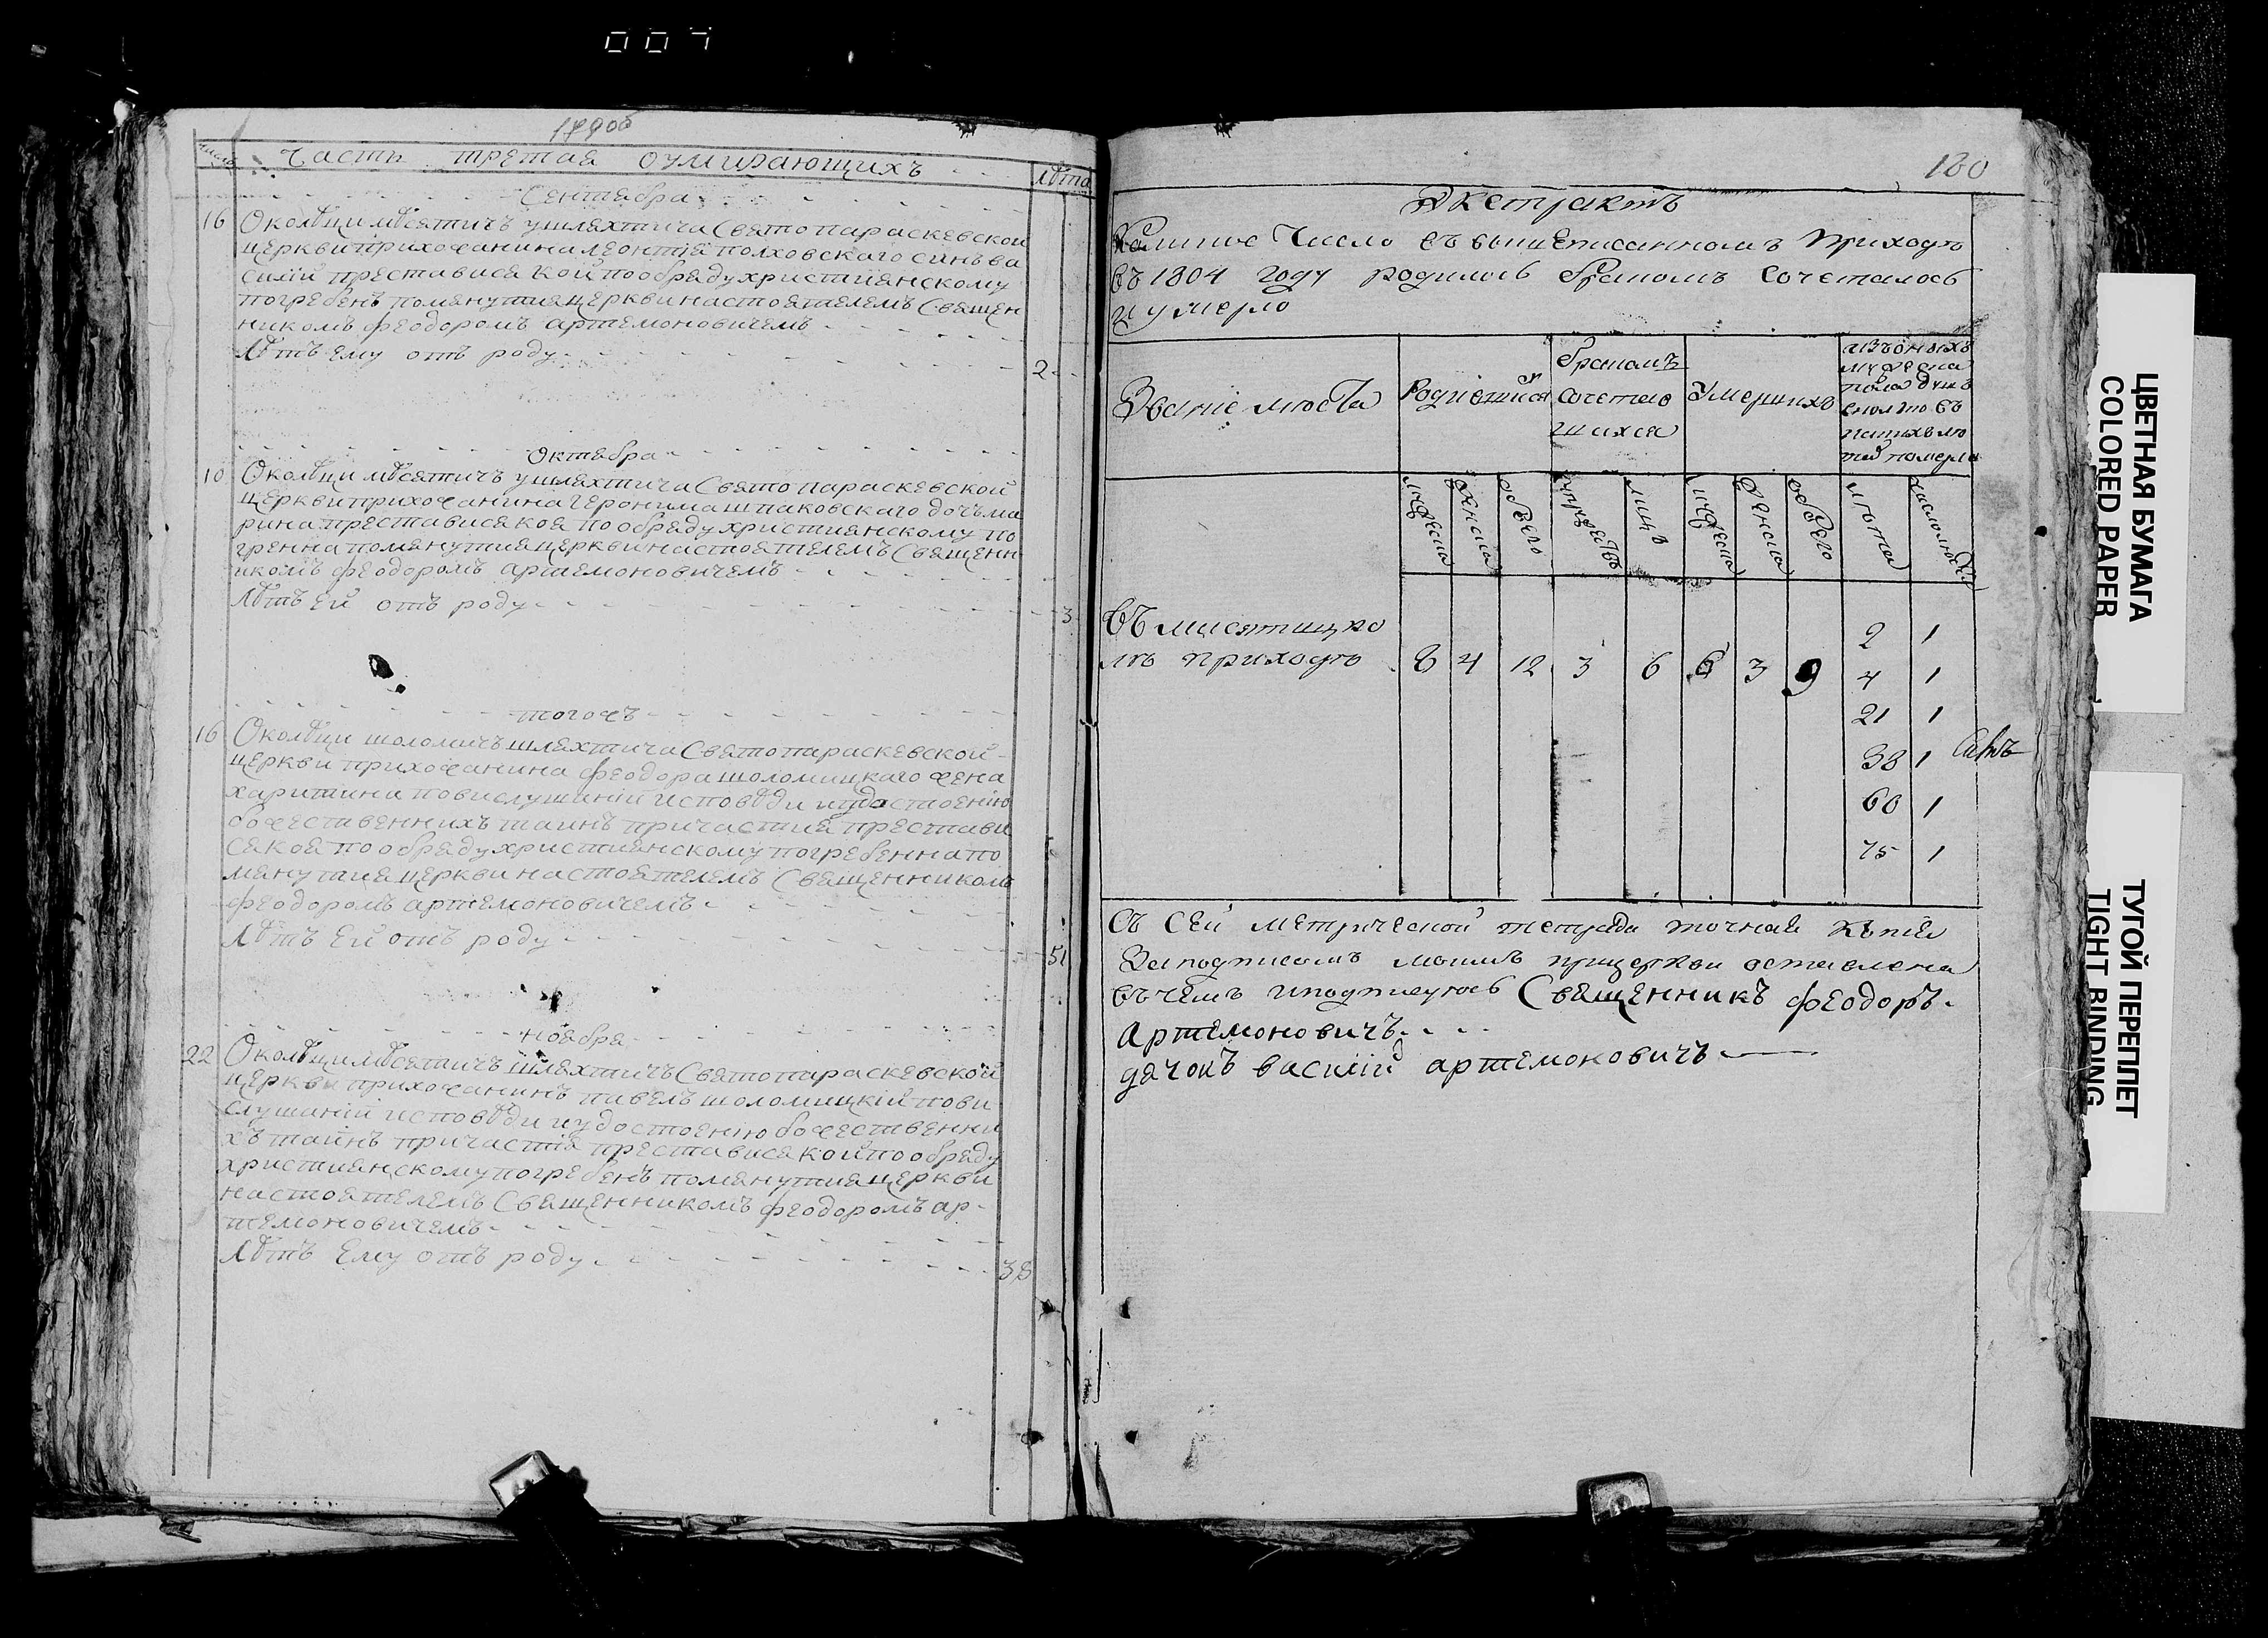 007
1790об
число
Часть третая оумирающихъ
лѣта
Сентебра
16 Околѣци мѣсятичъ у шляхтича Свято параскевской
церкви прихожанина леонтія полховского синъ ва
силій преставися кой по обряду християнскому
погребенъ помянутия церкви настоятелемъ Священ
никомъ феодоромъ артемоновичемъ
Лѣтъ ему отъ роду 2
Октебра
10 Околѣци мѣсятичъ у шляхтича Свято параскевской
церкви прихожанина геронима шпаковского дочъ ма
рина преставися коя по обряду християнскому по
гренна помянутия церкви настоятелемъ Священн
икомъ феодоромъ артемоновичемъ
Лѣтъ Ей отъ роду 3
тогожъ
16 Околѣци шоломичъ шляхтича Свято параскевской
церкви прихожанина феодора шоломицкаго жена
харитини по вислушаніи исповѣди и удостоенію
божественнихъ таинъ причастия престави
ся коя по обряду християнскому погребенна по
мянутия церкви настоятелемъ Священникомъ
феодоромъ артемоновичемъ
Лѣтъ Ей отъ роду 51
ноября
22 Околѣци мѣсятичъ шляхтичъ Свято параскевской
церкви прихожанинъ павелъ шоломицкій по ви
слушаніи исповѣди и удостоенію божественни
хъ таинъ причастія преставися кой по обряду
християнскому погребенъ помянутия церкви
настоятелемъ Священникомъ феодоромъ ар-
темоновичемъ
Лѣтъ Ему отъ роду 38
180
Экстрактъ
Коликое Число въ вышеписанномъ приходѣ
въ 1804 году родилось браком сочеталось
и умерло
Званіе мѣста
Родившихся
бракомъ
сочетав
шихся
Умершихъ
изъ оныхъ
мужеска
пола душъ
сколко въ
какихъ лѣ
тех померло
мужеска
женска
обоего
супружествъ
лицъ
мужеска
женска
обоего
лѣта
число людей
Въ мисятицко
мъ приходѣ 8 4 12 3 6 6 3 9
2 1
4 1
21 1
38 1
60 1
75 1
Съ Сей метрической тетради точная копія
За подписомъ моимъ при церкви оставлена
въ чемъ и подписуюсь Священникъ феодоръ
Артемоновичъ
дячокъ василій артемоновичъ
ЦВЕТНАЯ БУМАГА
COLORED PAPER
ТУГОЙ ПЕРЕПЛЕТ
TIGHT BINDING